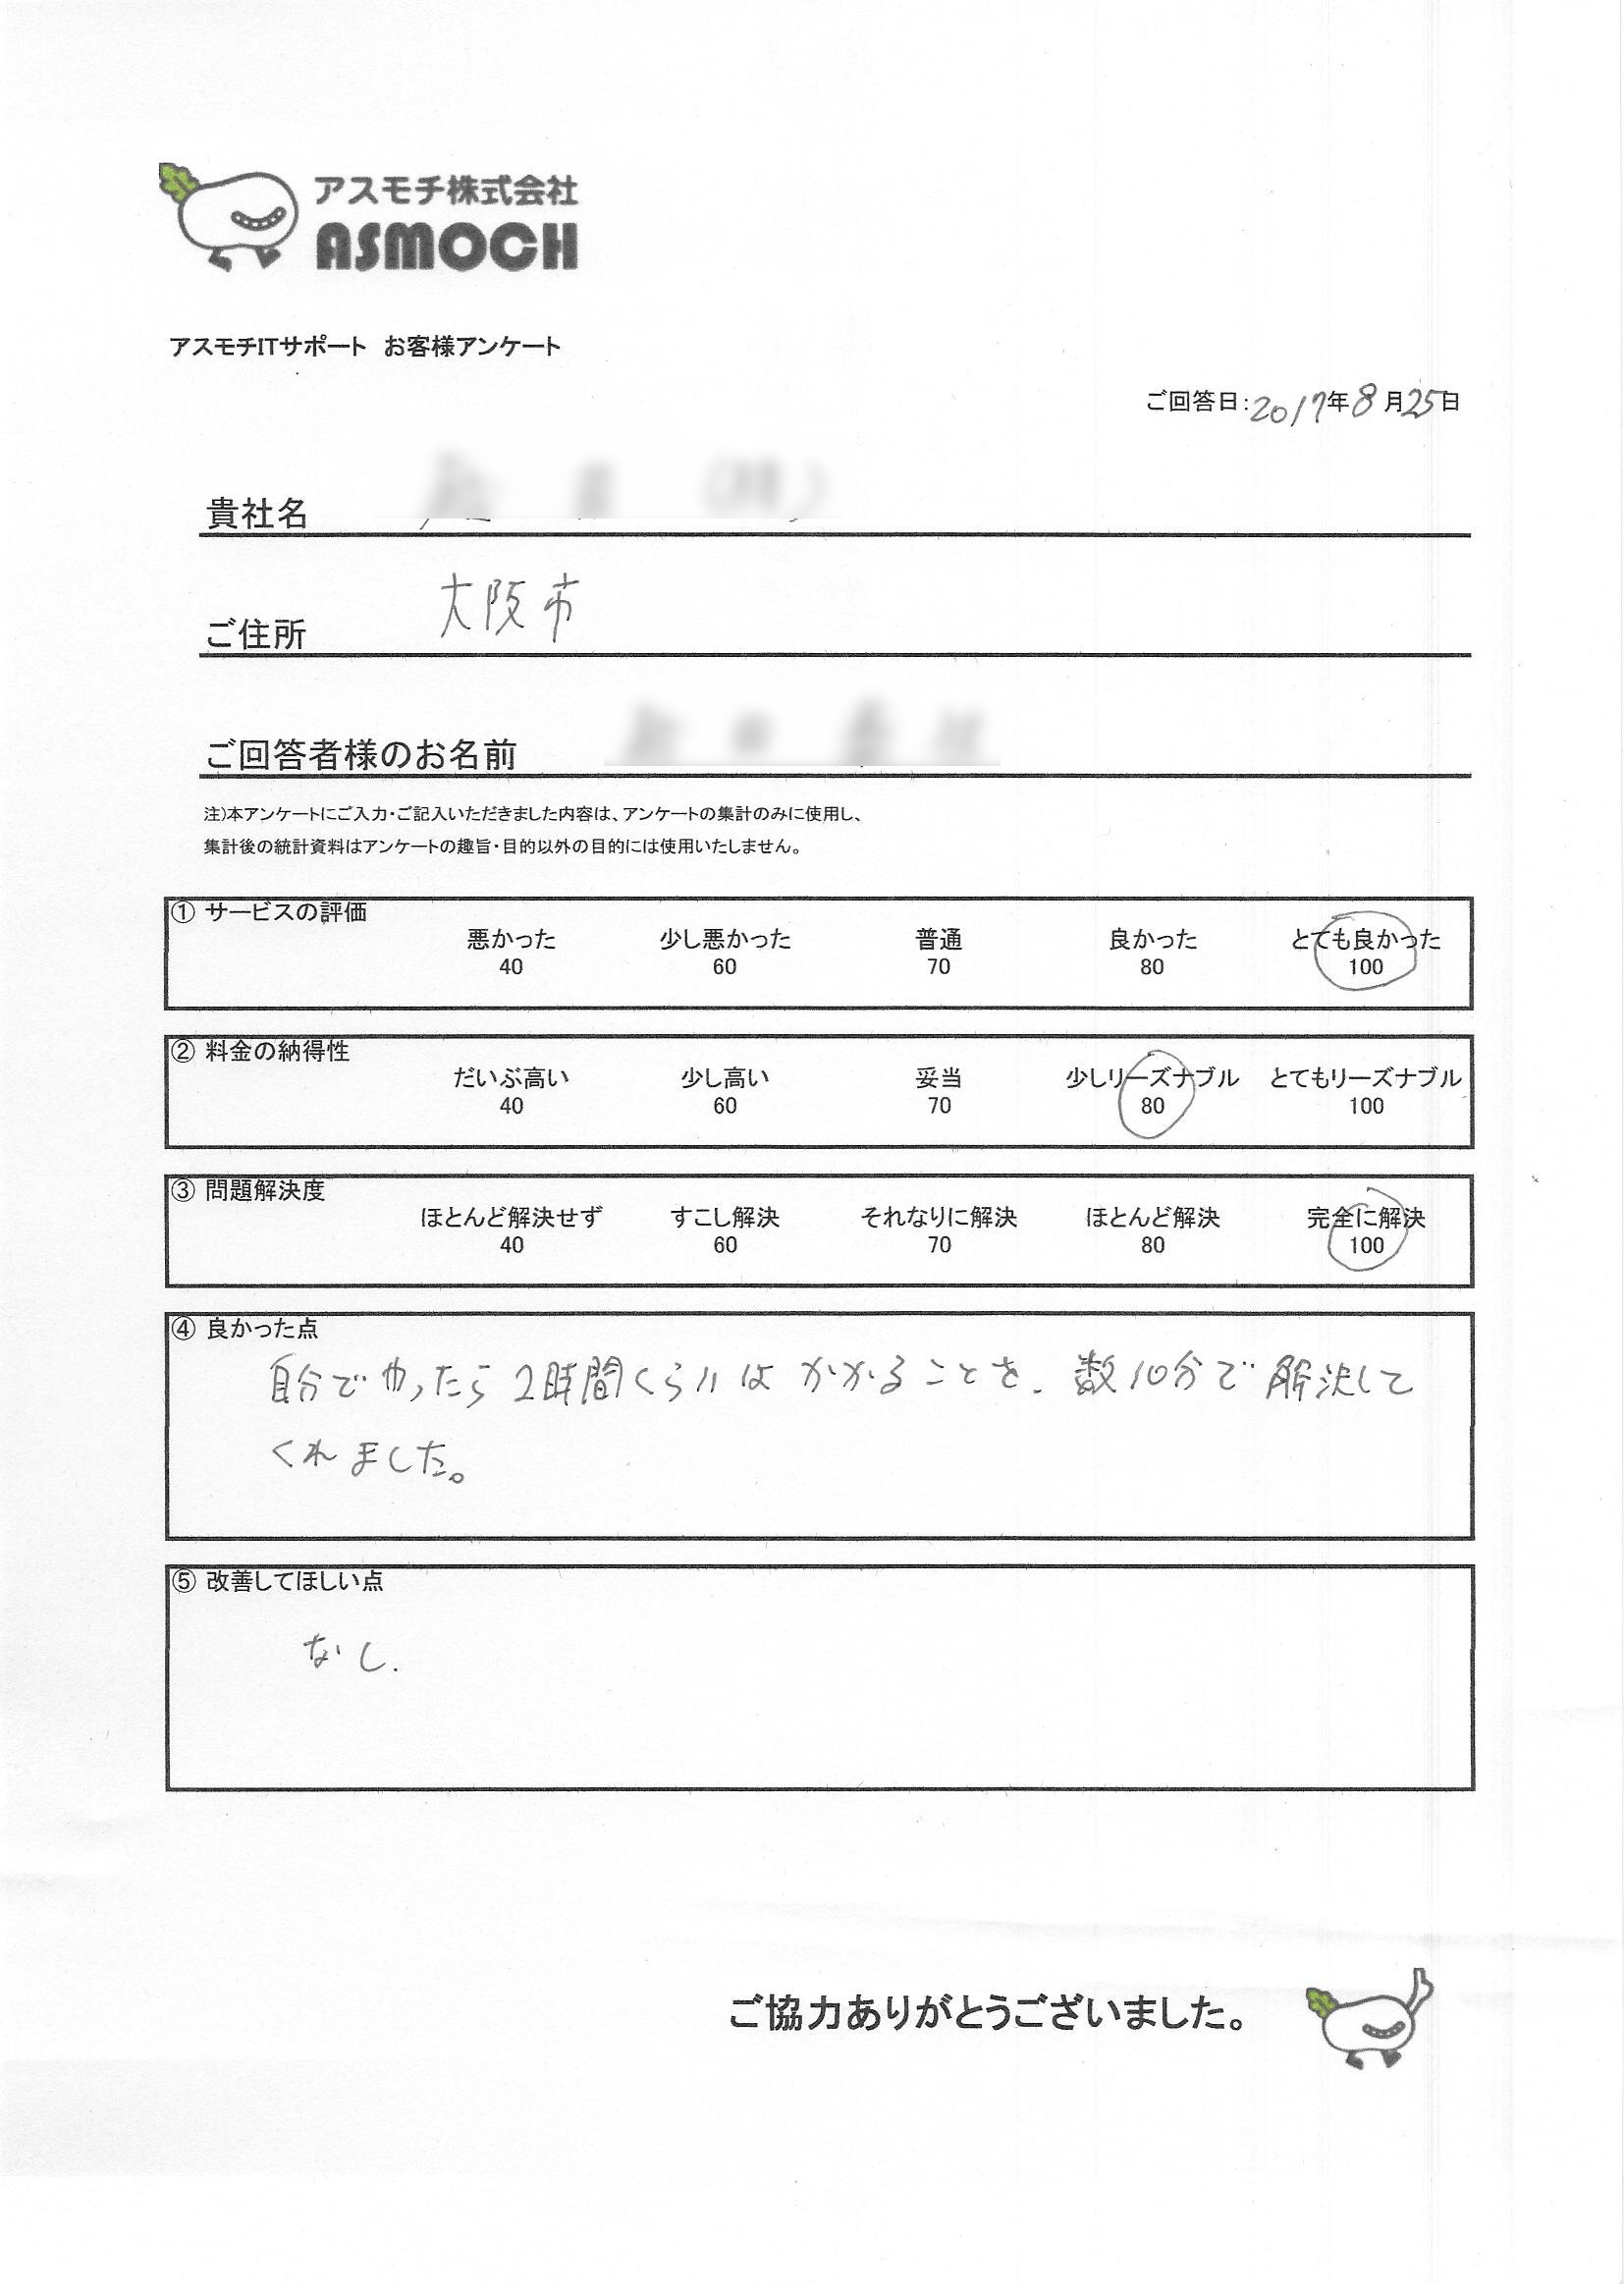 アスモチ株式会社
ASMOCH
アスモチITサポート　お客様アンケート
ご回答日:2017年8月25日
貴社名
ご住所 大阪市
ご回答者様のお名前
注)本アンケートにご入力・ご記入いただきました内容は、アンケートの集計のみに使用し、
集計後の統計資料はアンケートの趣旨・目的以外の目的には使用いたしません。
① サービスの評価
悪かった 少し悪かった 普通 良かった とても良かった
40 60 70 80 100
② 料金の納得性
だいぶ高い 少し高い 妥当 少しリーズナブル とてもリーズナブル
40 60 70 80 100
③ 問題解決度
ほとんど解決せず すこし解決 それなりに解決 ほとんど解決 完全に解決
40 60 70 80 100
④ 良かった点
自分でやったら2時間くらいはかかることを、数10分で解決して
くれました。
⑤ 改善してほしい点
なし.
ご協力ありがとうございました。